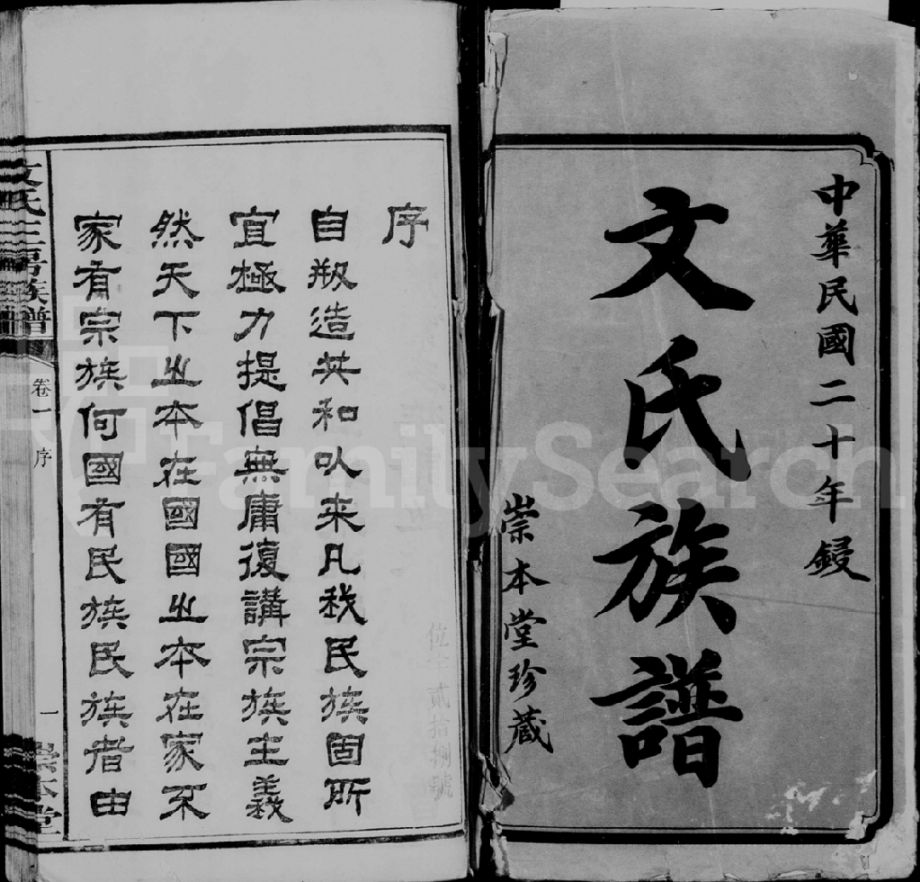 中華民國二十年鋟
文氏族譜
崇本堂珍藏
序
自剏造共和以来凡我民族固所
宜極力提倡無庸復講宗族主義
然天下之本在國國之本在家不
家有宗族何國有民族民族者由
文氏三房族譜
卷一
序
一
崇本堂
貳拾捌號
FamilySearch